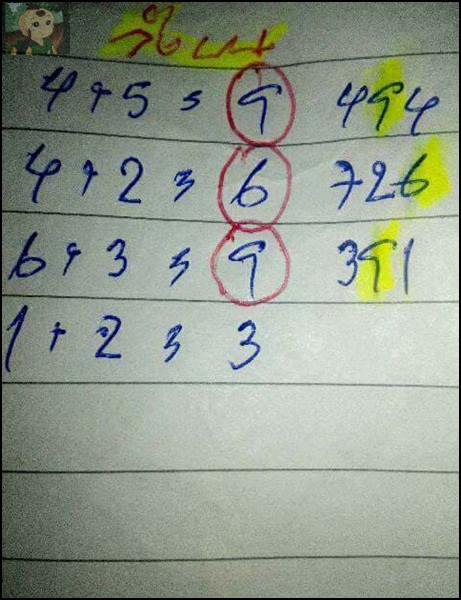 4+5=9 494
4+2=6 726
6+3=9 391
1+2=3